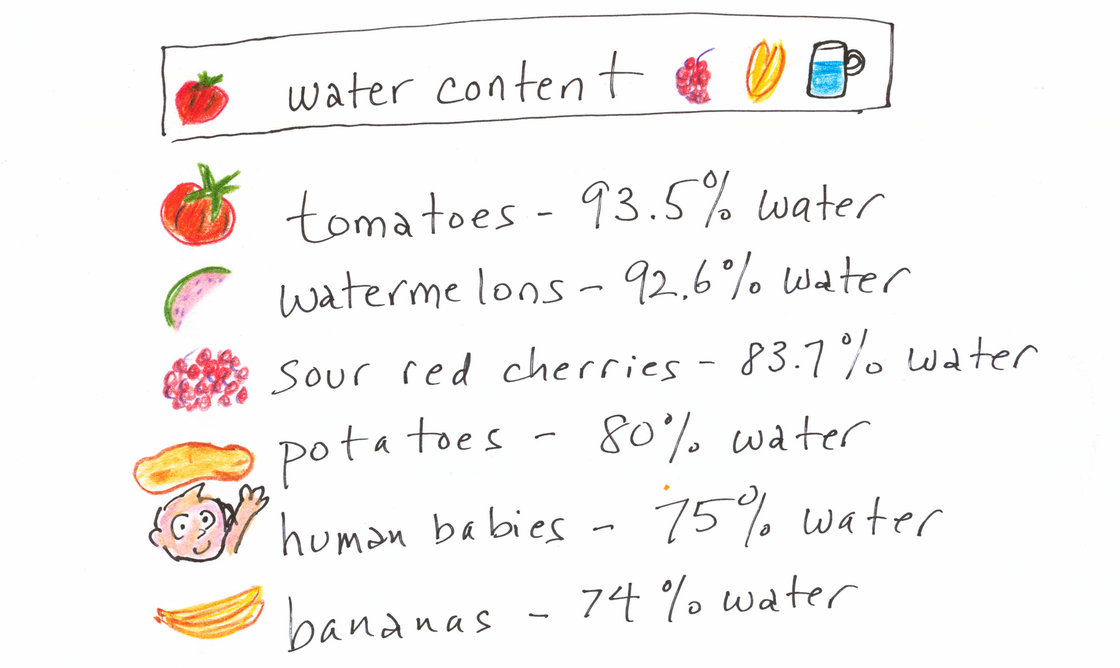 water content
tomatoes - 93.5% water
watermelons - 92.6% water
sour red cherries - 83.7% water
potatoes - 80% water
human babies - 75% water
bananas - 74% water